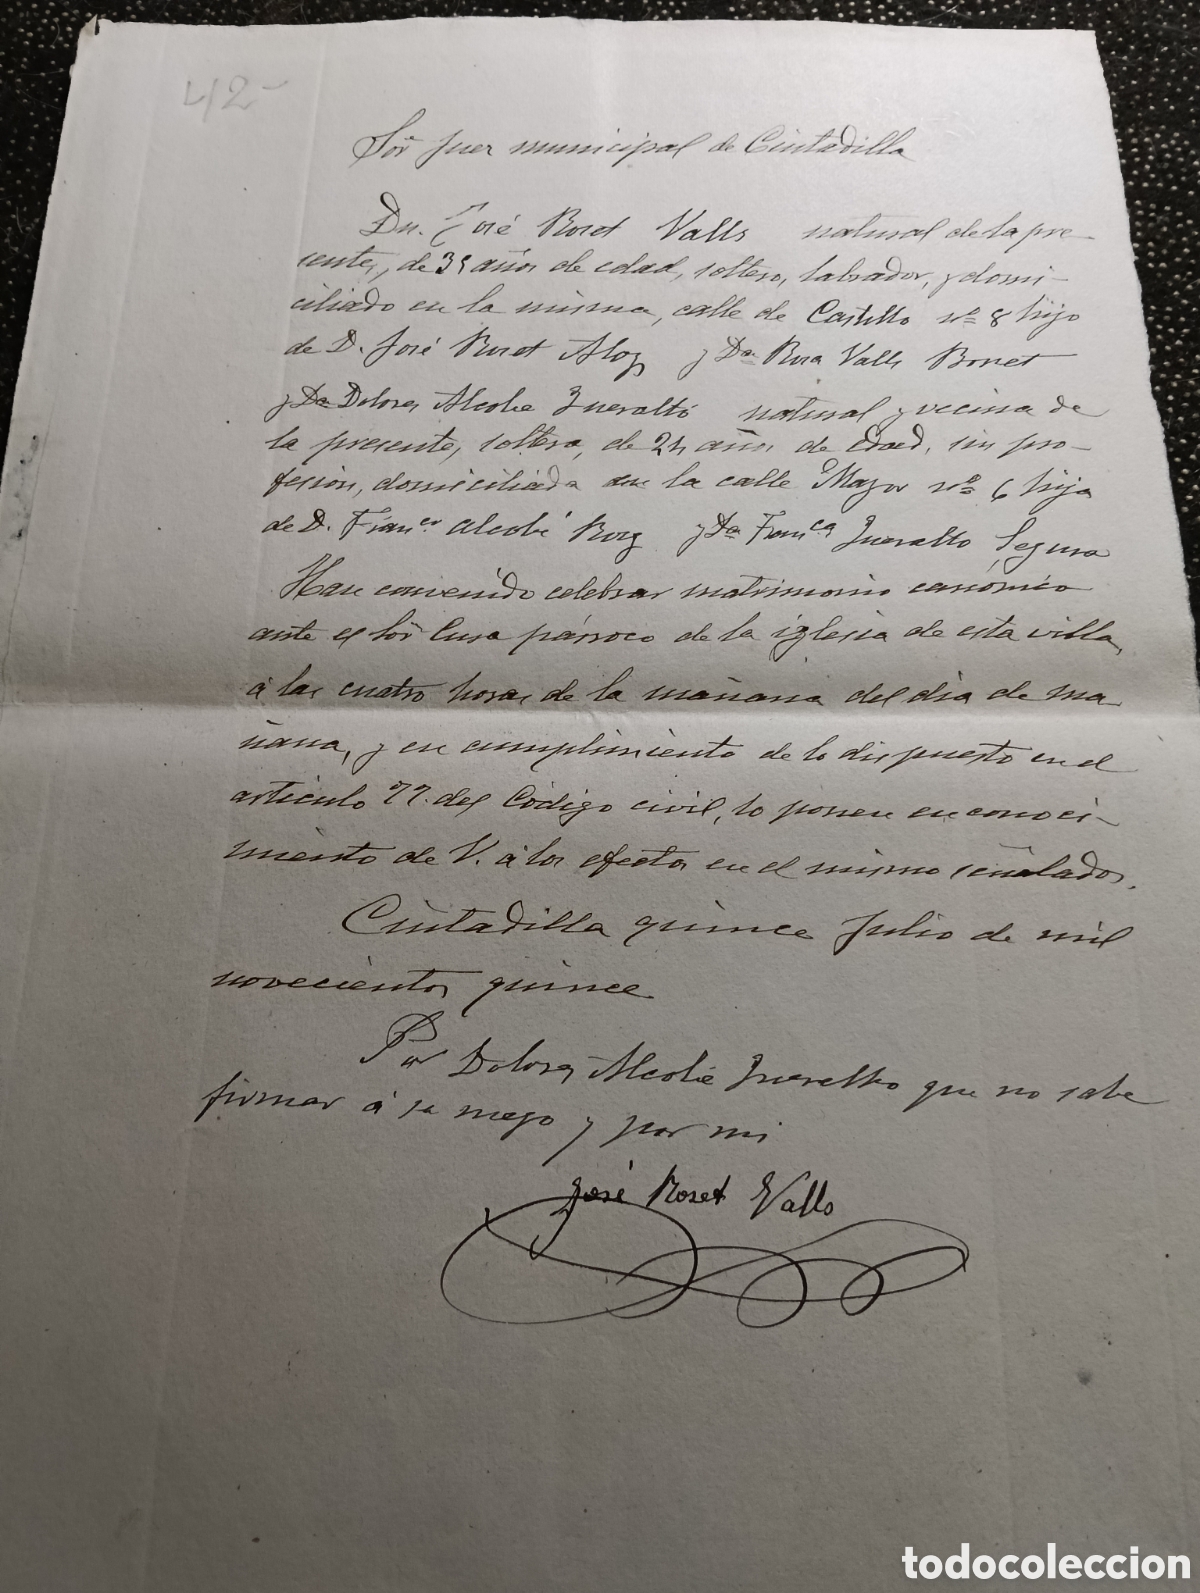 42-
Sor Juez municipal de Ciutadilla
Dn. José Roset Valls natural de la pre-
sente, de 35 años de edad, soltero, labrador, y domi-
ciliado en la misma, calle de Castillo nº 8 hijo
de D. José Roset Aloy y Da Rosa Valls Bonet
y Da Dolores Alcobé Queraltó natural y vecina de
la presente, soltera, de 24 años de edad, sin pro-
fesion, domiciliada en la calle Mayor nº 6 hija
de D. Franco Alcobé Roig y Da Franca Queralto Segura
Han convenido celebrar matrimonio canónico
ante el Sor Cura párroco de la iglesia de esta villa,
á las cuatro horas de la mañana del dia de ma
ñana, y en cumplimiento de lo dispuesto en el
articulo 77. del Código civil, lo ponen en conoci-
miento de V. á los efectos en el mismo señalados.
Ciutadilla quince Julio de mil
novecientos quince
Por Dolores Alcobé Queralto que no sabe
firmar á su ruego y por mi
José Roset Valls
todocoleccion